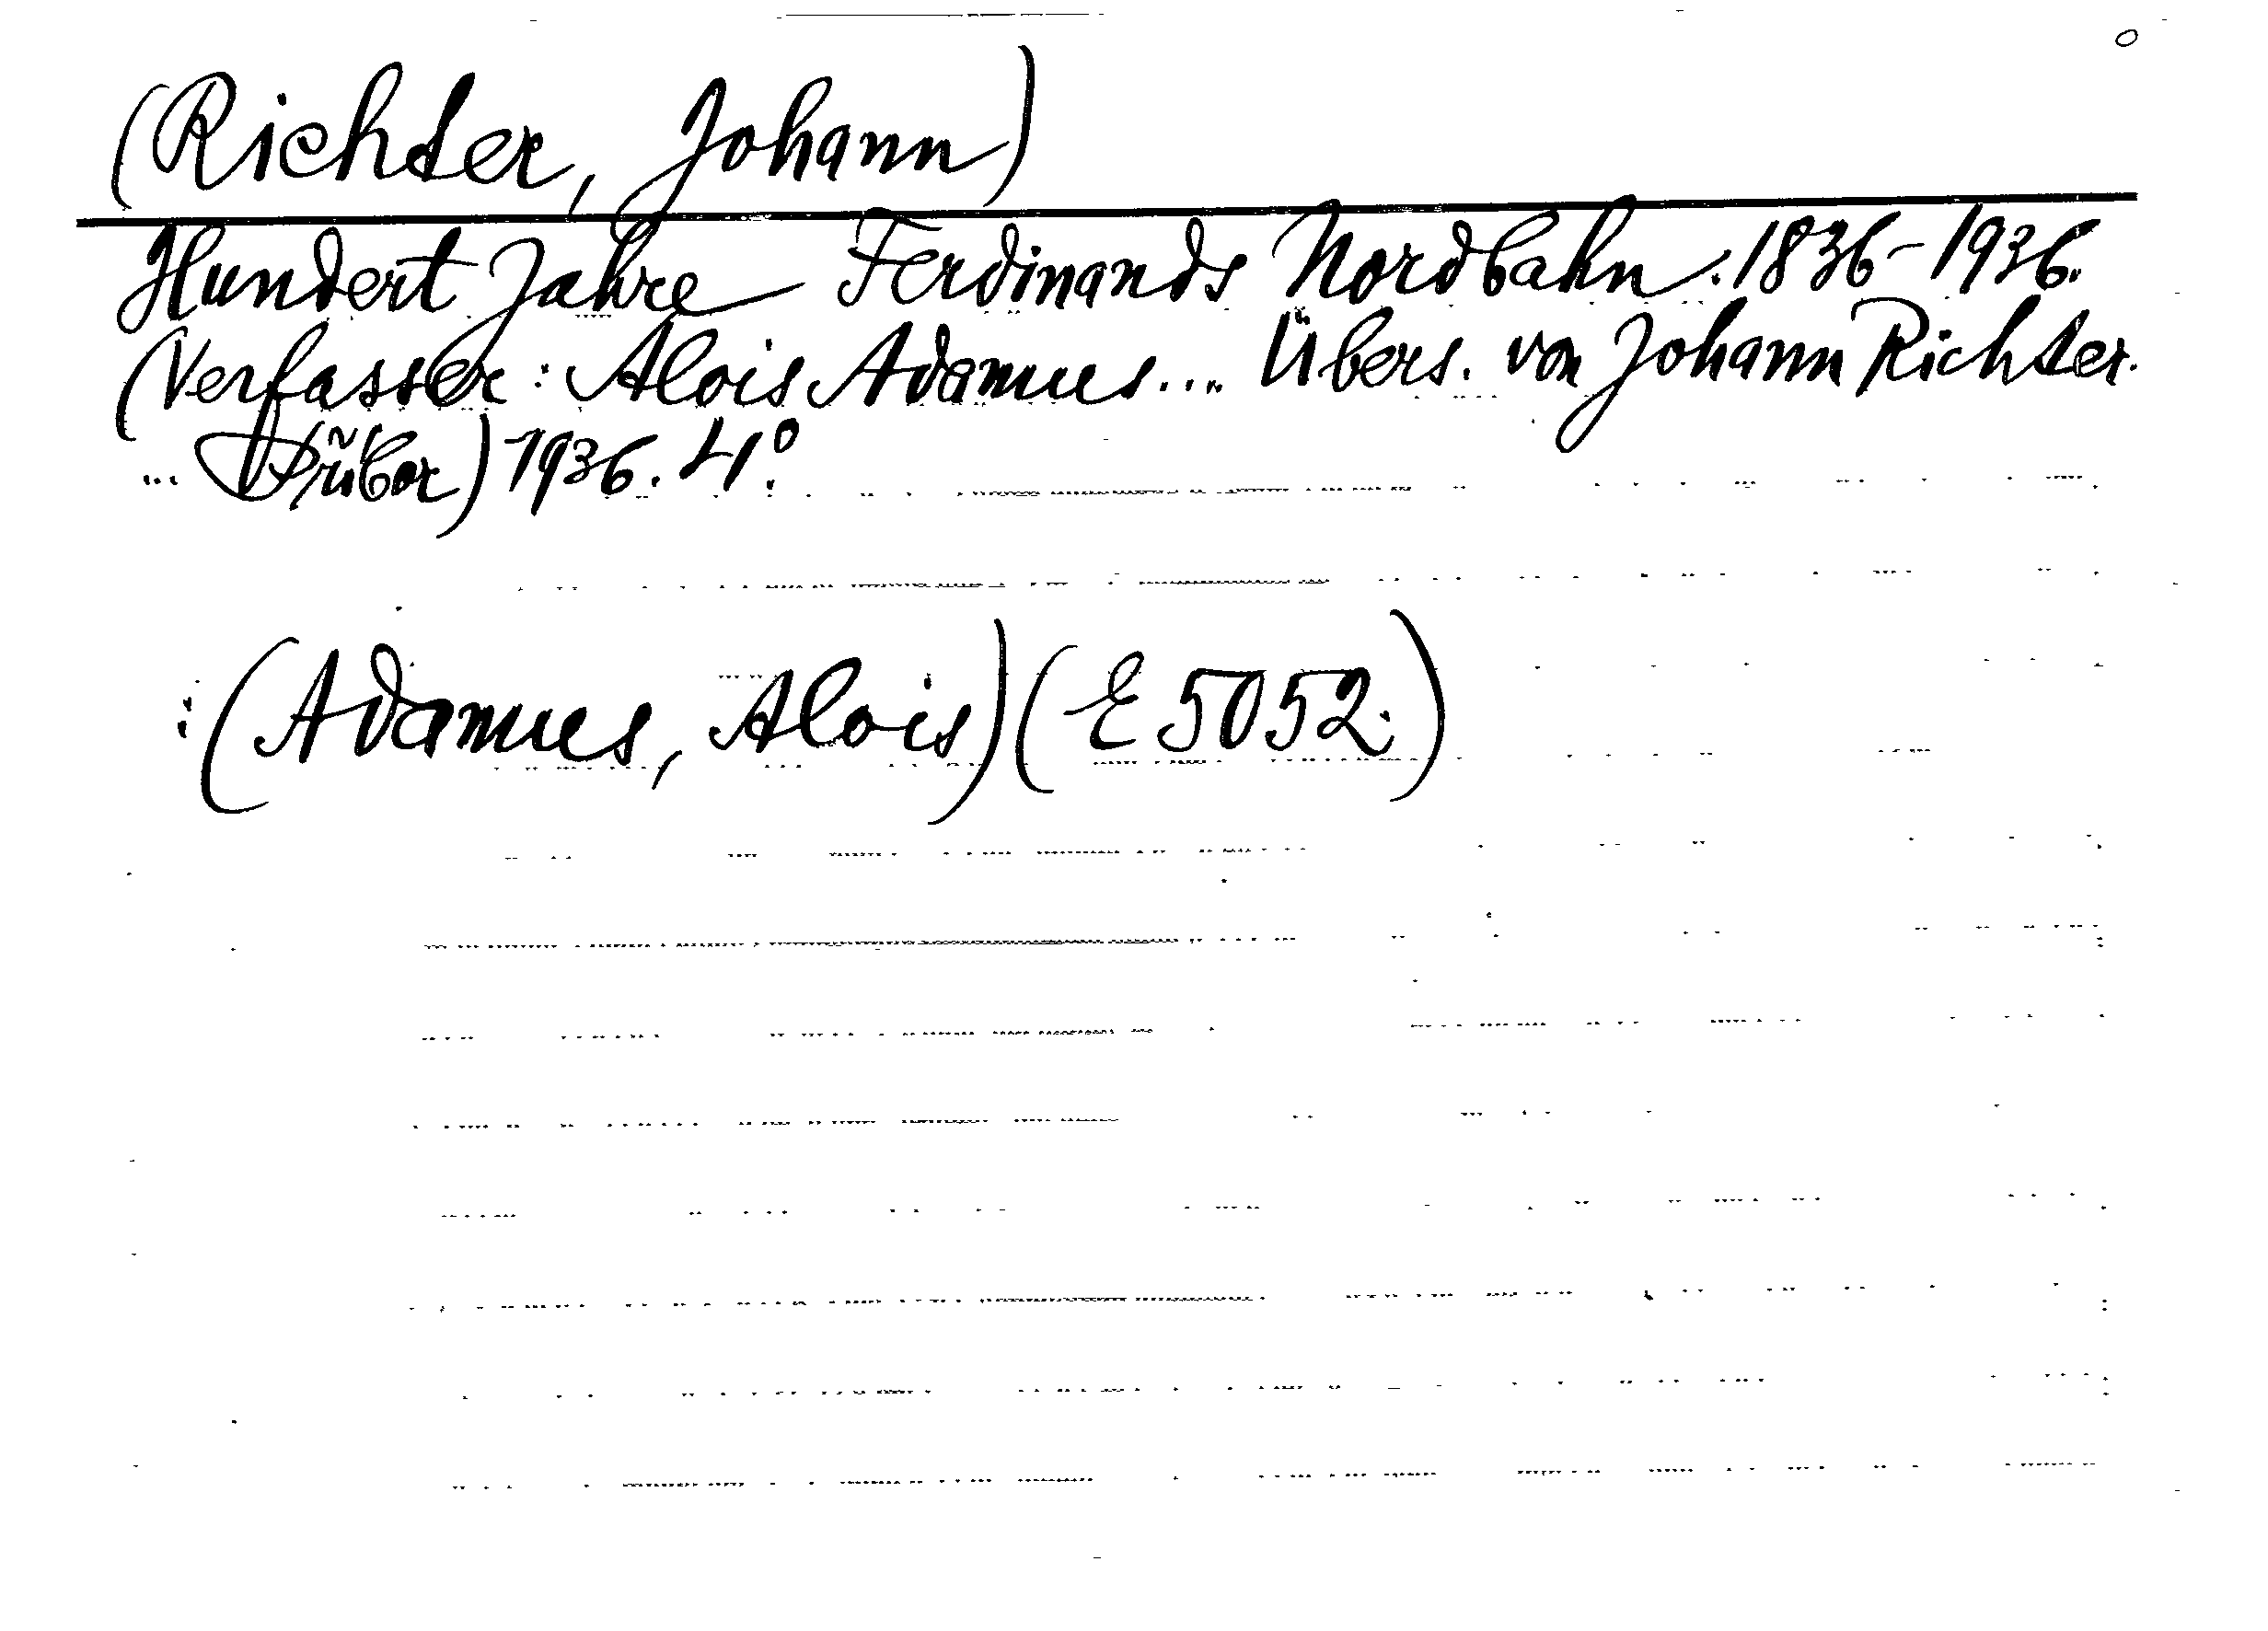 (Richter, Johann)
Hundert Jahre Ferdinands Nordbahn. 1836-1936.
(Verfasser: Alois Adamus... Übers. von Johann Richter.
... Přibor) 1936. 4°.
:(Adamus, Alois) (E 5052.)